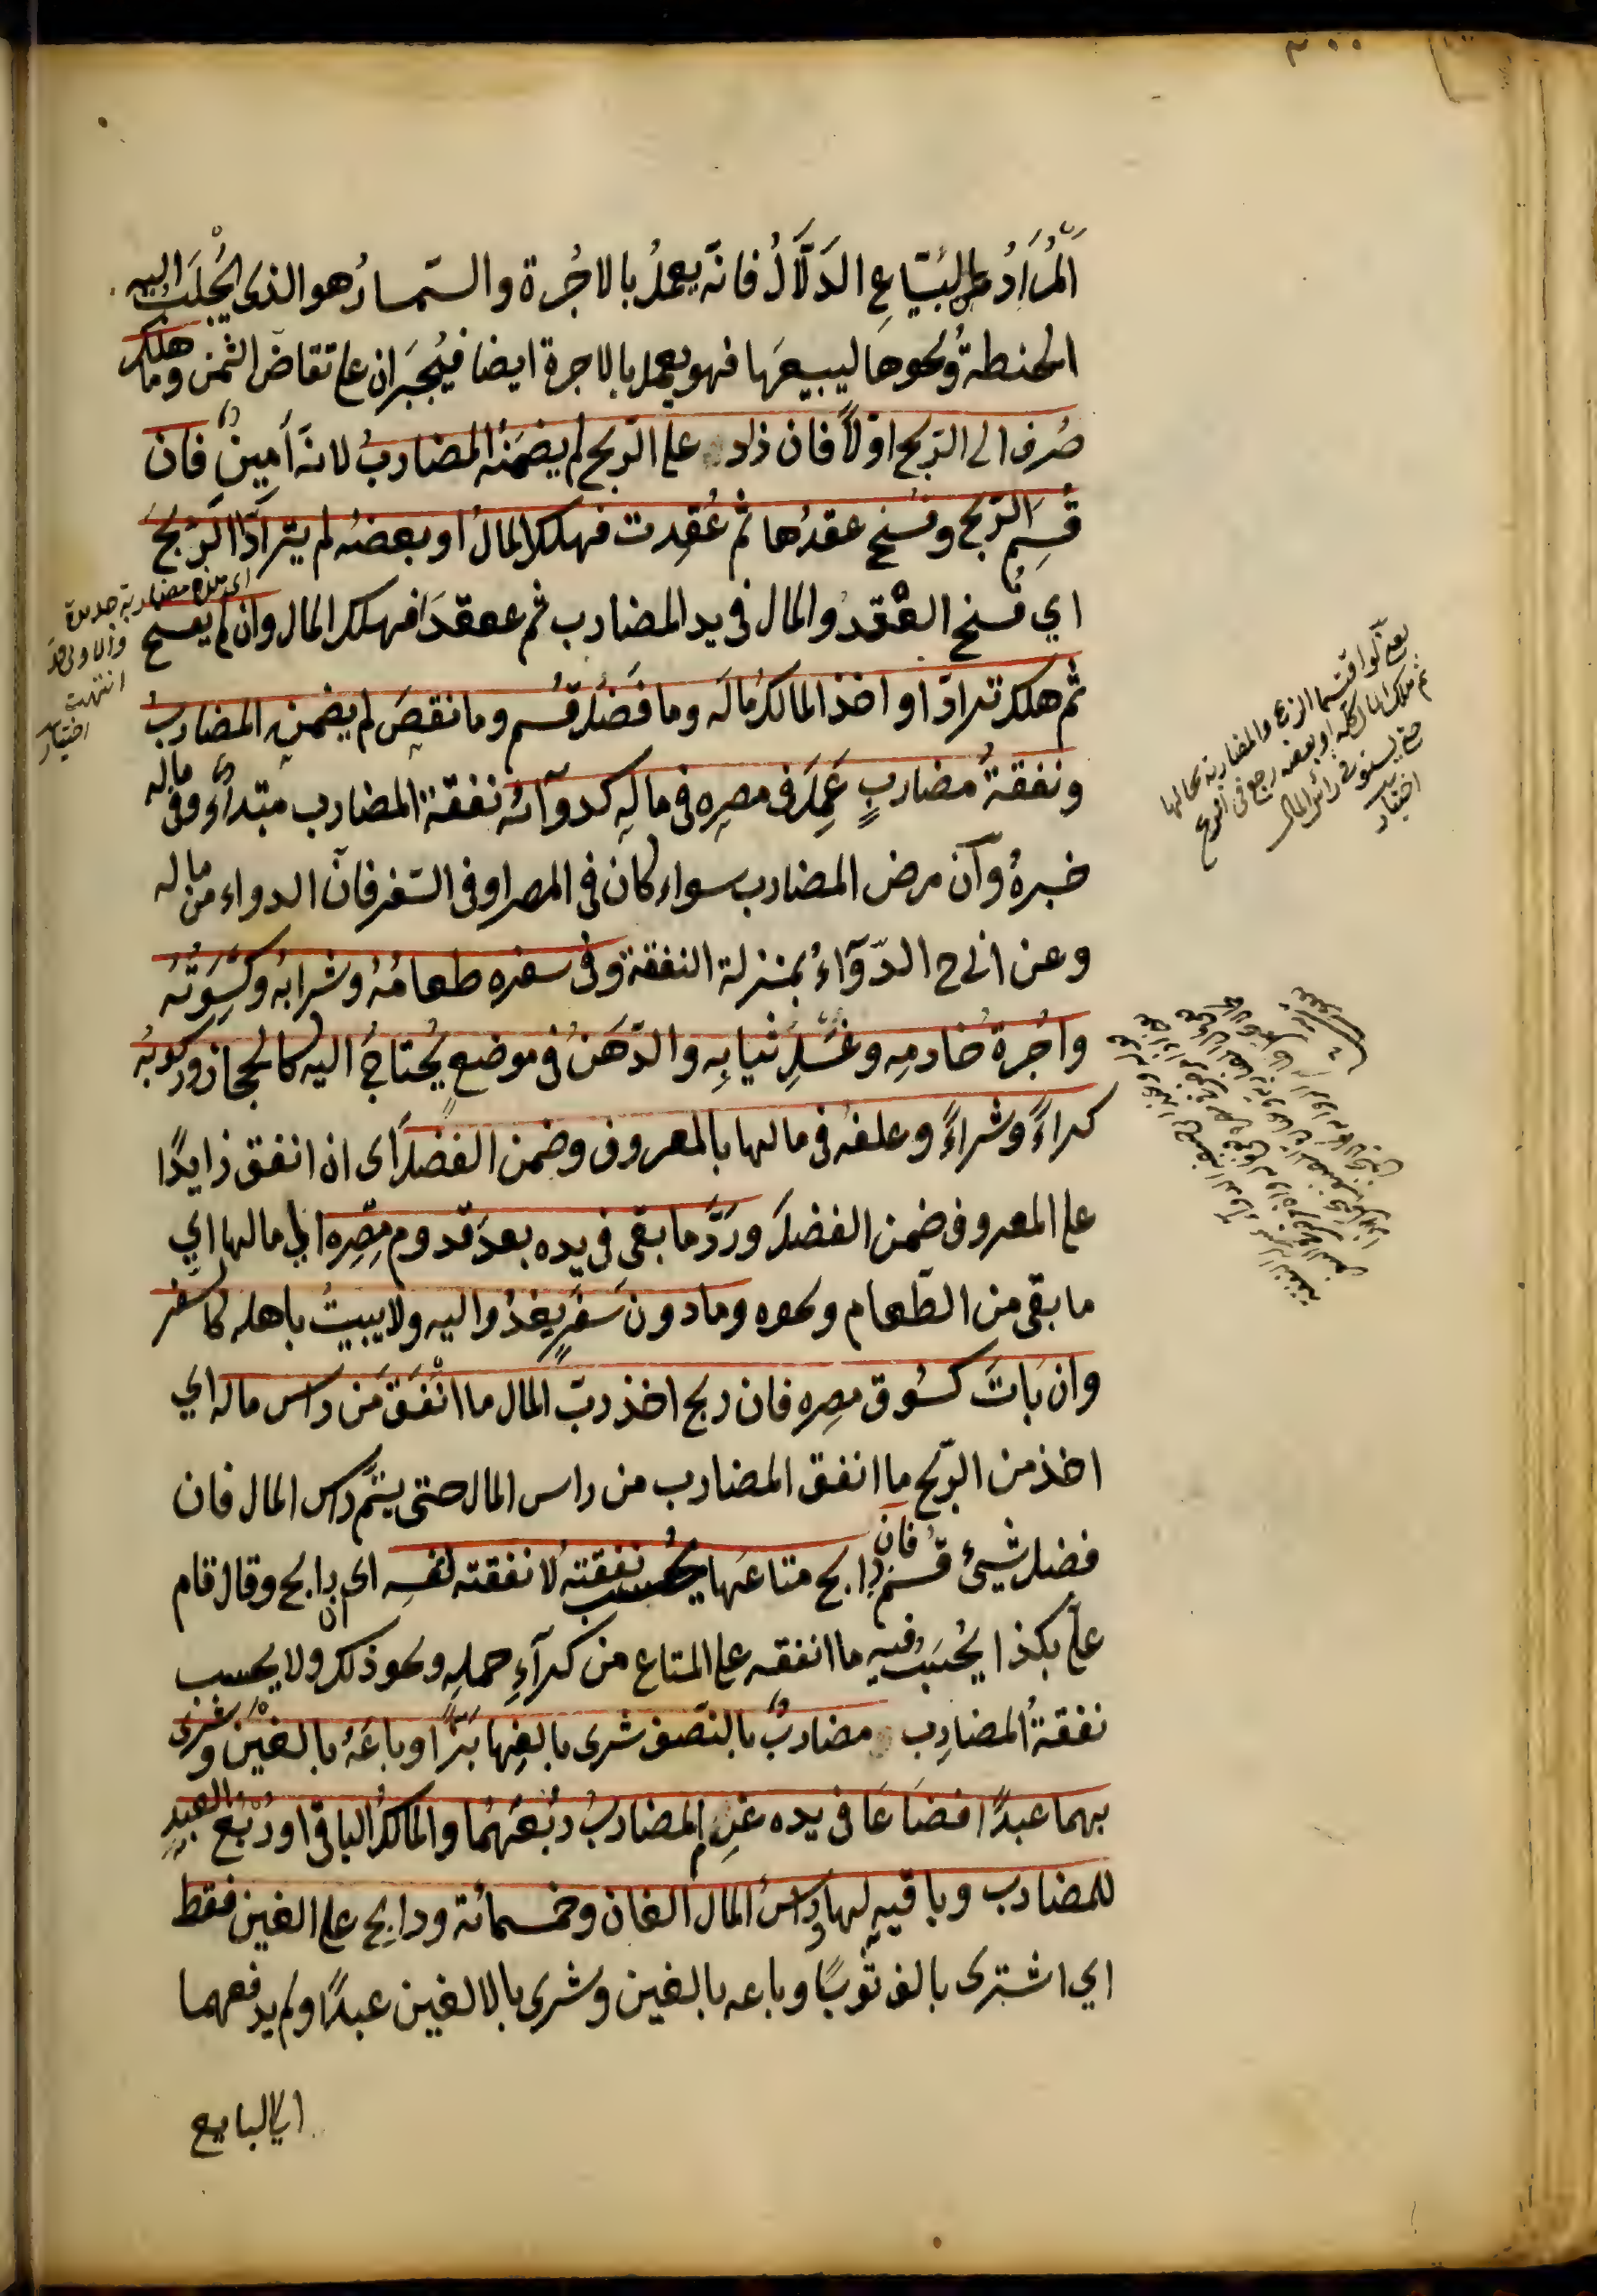 ٣٠٠
اَلْمُرَادُ بالبيّاعِ الدَلَّالُ فانّه يعملُ بالاُجُرة والسّمسارُ هو الذى يُجْلَبُ اليه
الحنطةُ ونحوها ليبيعَها فهو يعمل بالاجرة ايضا فيُجبَران على تقاضى الثمن وما هلك
صُرف الى الرّبح اوّلاً فان زاد على الرّبح لم يضمَنْه المضاربُ لانّه اَمِينٌ فان
قُسِمَ الرّبح وفُسخ عقدُها ثم عُقِدت فهلك المالُ او بعضُه لم يترادّا الرّبحَ
اي فُسخ العقدُ والمال فى يد المضارب ثم عقدَا فهلك المال وان لم يفسخ
ثم هلك ترادّا واخذ المالكُ مالَه وما فَضَلَ قُسم وما نقصَ لم يضمنْه المضاربُ
ونفقةُ مضاربٍ عَمِلَ فى مصرِه فى مالِه كدوآئه نفقة المضارب مبتدأ وفى ماله
خبرهُ وان مرض المضارب سواء كان فى المصر او فى السّفر فانّ الدواء من ماله
وعن ابى ح الدّوآءُ بمنزلة النفقة وفى سفره طعامُهُ وشرابهُ وكِسْوَتُه
واُجرةُ خادمِه وغَسْلِ ثيابِه والدّهنُ فى موضع يُحتاجُ اليه كالحجاز وركوبُه
كراءً وشراءً وعلفُه فى مالها بالمعروف وضمن الفضلَ اى ان انفق زايدًا
على المعروف ضمن الفضلَ ورَدَّ ما بقى فى يده بعدَ قدوم مِصْرِه الى مالها اي
ما بقى من الطّعام ونحوه وما دون سَفَرٍ يغدُوا اليه ولا يبيتُ باهله كالسفر
وان بَاتَ كسُوق مصرِه فان ربح اخذ ربّ المال ما انْفَقَ مَن راس ماله اي
اخذ من الرّبح ما انفق المضارب من راس المال حتى يتمَّ راس المال فان
فضل شيئ قُسم فان رابح متاعَها يُحسب نفقتهُ لا نفقته لنفسه اى ان رابح وقال قام
علىّ بكذا يُحْسَبُ فيه ما انفقه على المتاع من كرآءِ حمله ونحو ذلك ولا يحسب
نفقةُ المضارِب مضاربٌ بالنّصف شرى بالفِها بَزًّا وباعَهُ بالفَيْن وشرى
بهما عبدًا فضَاعَا فى يده غرِم المضاربُ رُبُعَهُما والمالكُ الباقى ورُبُعُ العبدِ
للمضارب وباقيه لها وراسُ المال الفان وخمسمائة ورابح على الفين فقط
اي اشترى بالف ثوبًا وباعه بالفين وشرى بالالفين عبدًا ولم يدفعهما
الى البايع
اى هذه مضاربة جديدة
والاولى قد
انتهت
اختيار
يعنى لو اقتسما الربح والمضاربة بحالها
ثم هلك المال كلّه او بعضه رجع فى الربح
حتى يستوفى رأس المال
اختيار